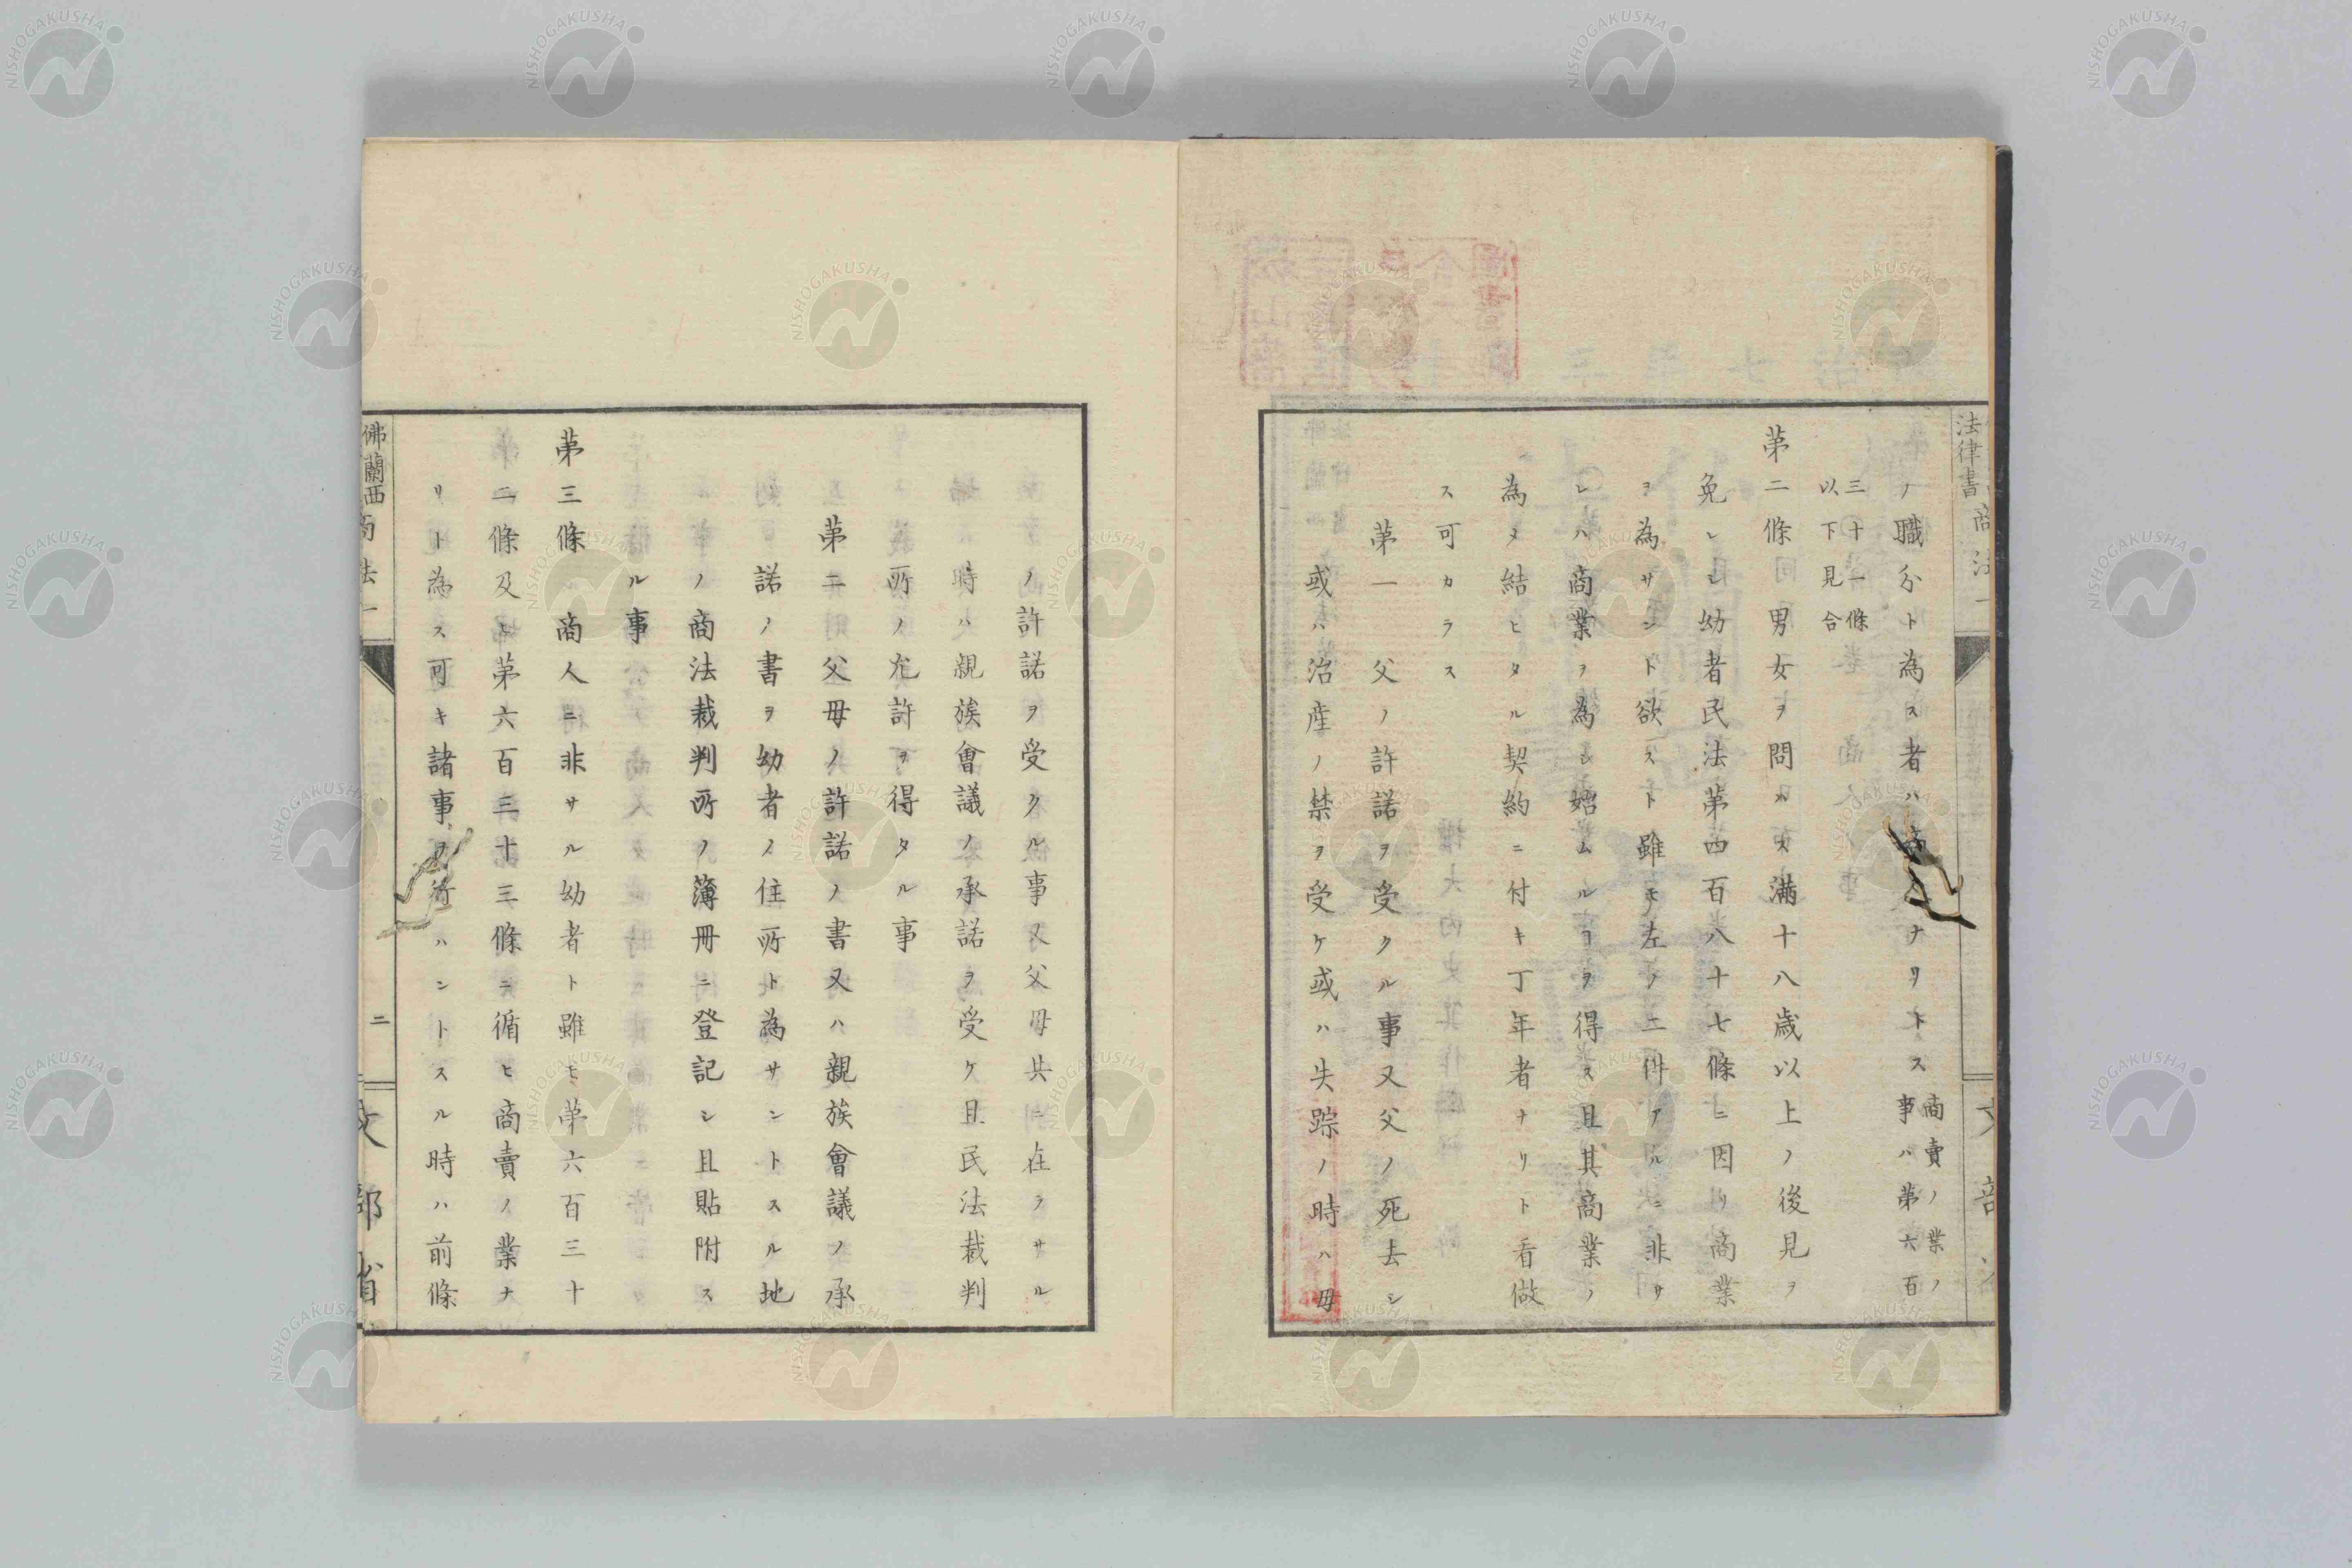 法律書 商法 一
ノ職分ト為ス者ハ商人ナリトス 商賣ノ業ノ
事ハ第六百
三十一條
以下見合
第二條 男女ヲ問ハス滿十八歳以上ノ後見ヲ
免レシ幼者民法第四百八十七條ニ因リ商業
ヲ為サント欲スト雖モ左ノ二件アルニ非サ
レハ商業ヲ為シ始ムルヿヲ得ス且其商業ノ
為メ結ヒタル契約ニ付キ丁年者ナリト看做
ス可カラス
第一 父ノ許諾ヲ受クル事又父ノ死去シ
或ハ治産ノ禁ヲ受ケ或ハ失踪ノ時ハ母
ノ許諾ヲ受クル事又父母共ニ在ラサル
時ハ親族會議ノ承諾ヲ受ケ且民法裁判
所ノ允許ヲ得タル事
第二 父母ノ許諾ノ書又ハ親族會議ノ承
諾ノ書ヲ幼者ノ住所ト為サントスル地
ノ商法裁判所ノ簿冊ニ登記シ且貼附ス
ル事
第三條 商人ニ非サル幼者ト雖モ第六百三十
二條及ヒ第六百三十三條ニ循ヒ商賣ノ業ナ
リト為ス可キ諸事ヲ行ハントスル時ハ前條
佛蘭西 商法 一
二
文部省